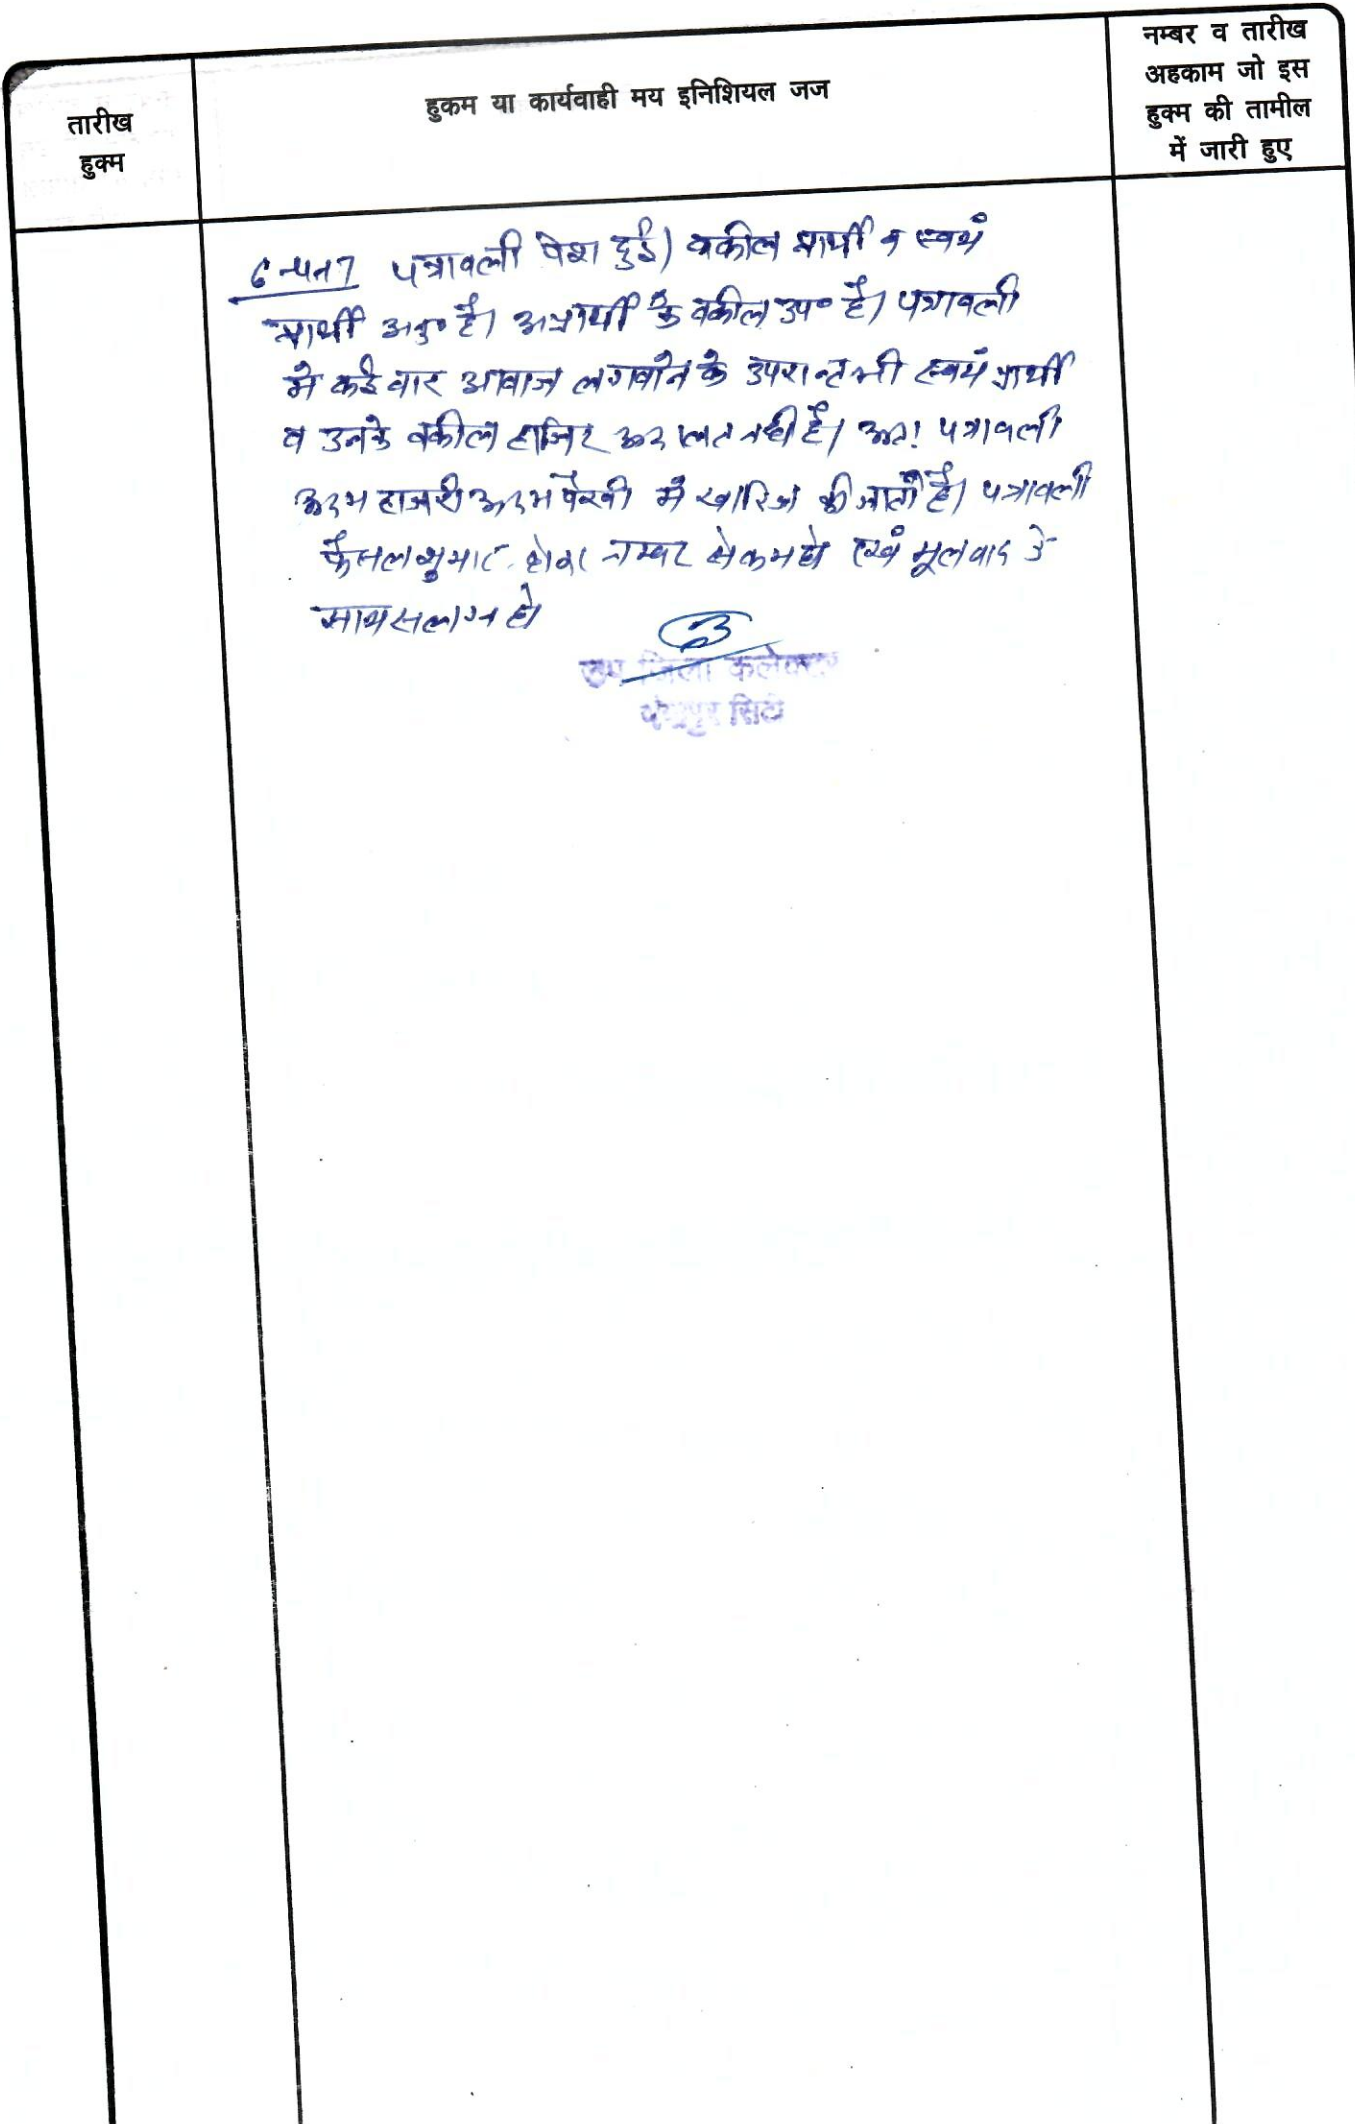 तारीख
हुक्म
हुकम या कार्यवाही मय इनिशियल जज
नम्बर व तारीख
अहकाम जो इस
हुक्म की तामील
में जारी हुए
पत्रावली पेश हुई। वकील प्रार्थी व स्वयं
प्रार्थी अनु० है। अप्रार्थी के वकील उप० है। पत्रावली
मे कई बार आवाज लगवाने के उपरान्त भी स्वयं प्रार्थी
व उनके वकील हाजिर अदालत नही है। अतः पत्रावली
अदम हाजरी अदम पैरवी में खारिज की जाती है। पत्रावली
फैसल शुमार होकर नम्बर से कम हो एवं मूलवाद के
साथ सलग्न हो
उप जिला कलेक्टर
सिटी